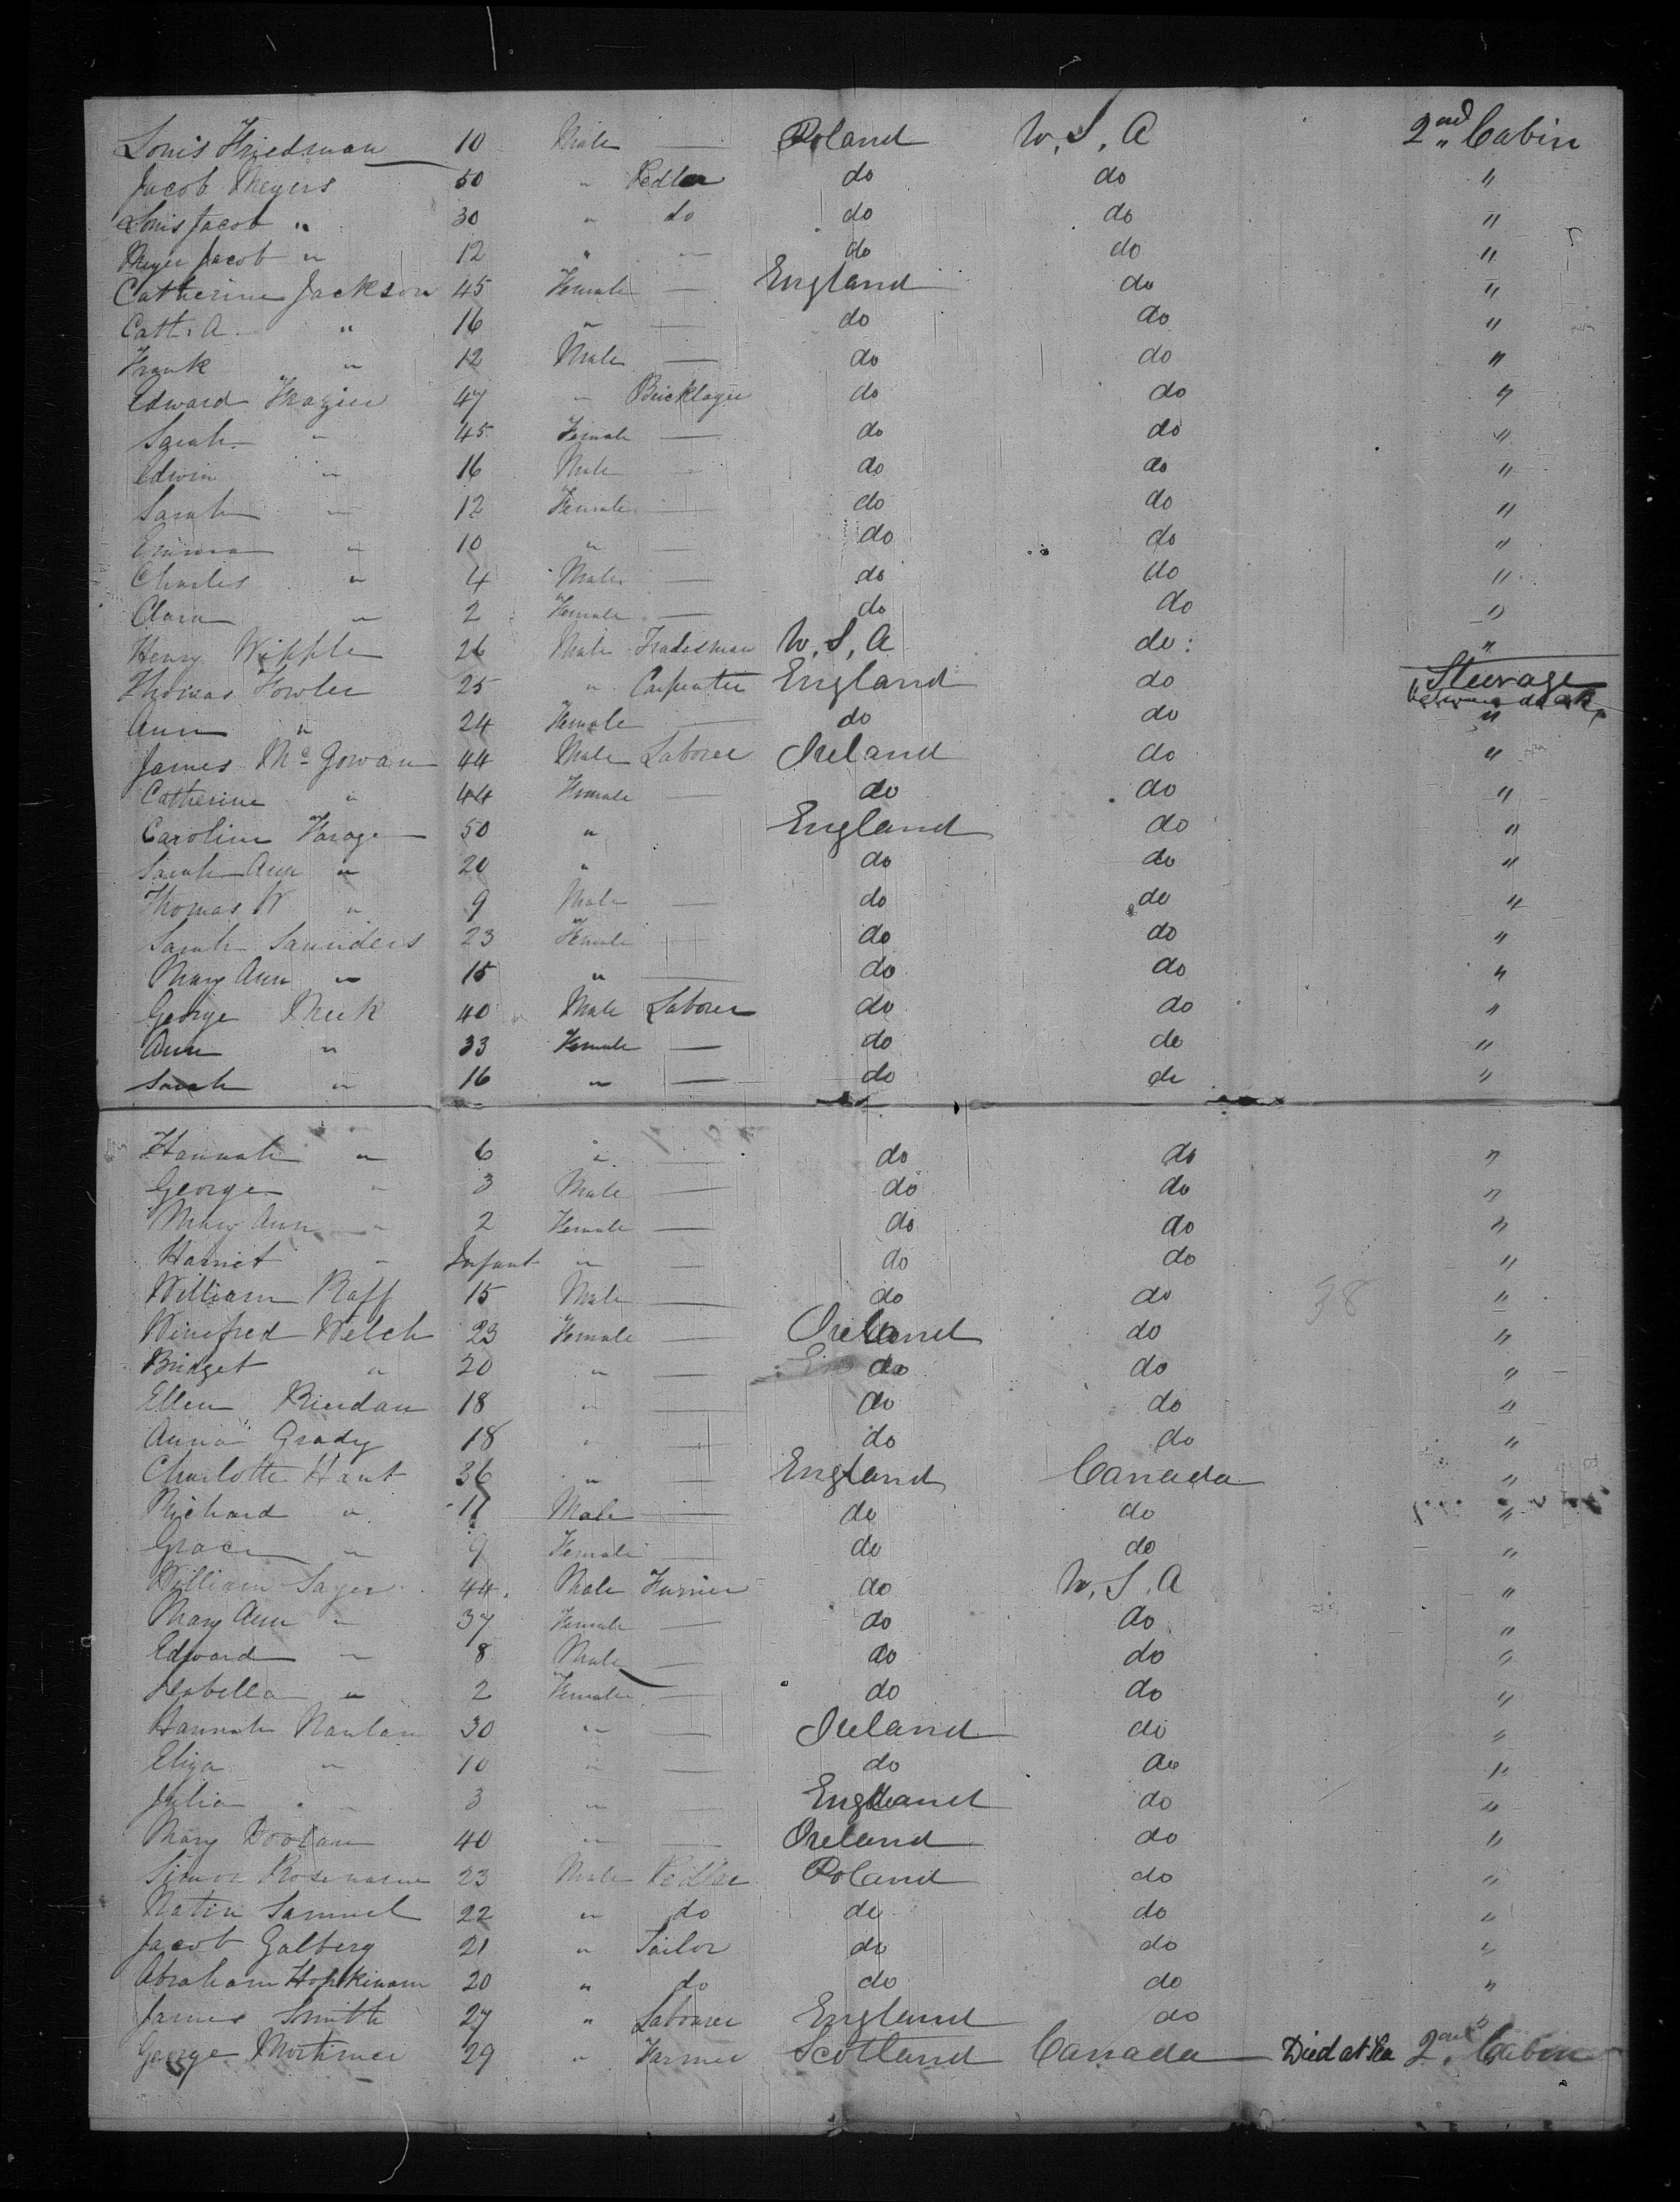 Louis Friedman 10 Male — Poland U.S.A 2nd Cabin
Jacob Meyers 50 " Pedler do do "
Louis Jacob " 30 " do do do "
Meyer Jacob " 12 " — do do "
Catherine Jackson 45 Female — England do "
Cath. A " 16 " — do do "
Frank " 12 Male — do do "
Edward Frazier 47 " Bricklayer do do "
Sarah " 45 Female — do do "
Edwin " 16 Male — do do "
Sarah " 12 Female — do do "
Emma " 10 " — do do "
Charles " 4 Male — do do "
Clara " 2 Female — do do "
Henry Wipple 26 Male Tradesman U.S.A do "
Thomas Fowler 25 " Carpenter England do Steerage
between decks
Ann " 24 Female — do do "
James Mc Gowan 44 Male Laborer Ireland do "
Catherine " 44 Female — do do "
Caroline 50 " England do "
Sarah Ann " 20 " do do "
Thomas W " 9 Male — do do "
Sarah Saunders 23 Female — do do "
Mary Ann " 15 " — do do "
George Meek 40 Male Laborer do do "
Ann " 33 Female — do do "
Sarah " 16 " — do do "
Hannah " 6 " — do do "
George " 3 Male — do do "
Mary Ann " 2 Female — do do "
Harriet " Infant " — do do "
William Raff 15 Male — do do 38 "
Winifred Welch 23 Female — Ireland do "
Bridget " 20 " — do do "
Ellen Rierdan 18 " — do do "
Anna Grady 18 " — do do "
Charlotte Hunt 36 " — England Canada "
Richard " 11 Male — do do "
Grace " 9 Female — do do "
William Sayer 44 Male Furrier do U.S.A "
Mary Ann " 37 Female — do do "
Edward " 8 Male — do do "
Isabella " 2 Female — do do "
Hannah Nanlan 30 " — Ireland do "
Eliza " 10 " — do do "
Julia " 3 " — England do "
Mary Doolan 40 " — Ireland do "
Simon 23 Male Pedlar Poland do "
Natin Samuel 22 " do do do "
Jacob Galberg 21 " Tailor do do "
Abraham 20 " do do do "
James Smith 27 " Labourer England do "
George Mortimer 29 " Farmer Scotland Canada — Died at Sea 2nd Cabin